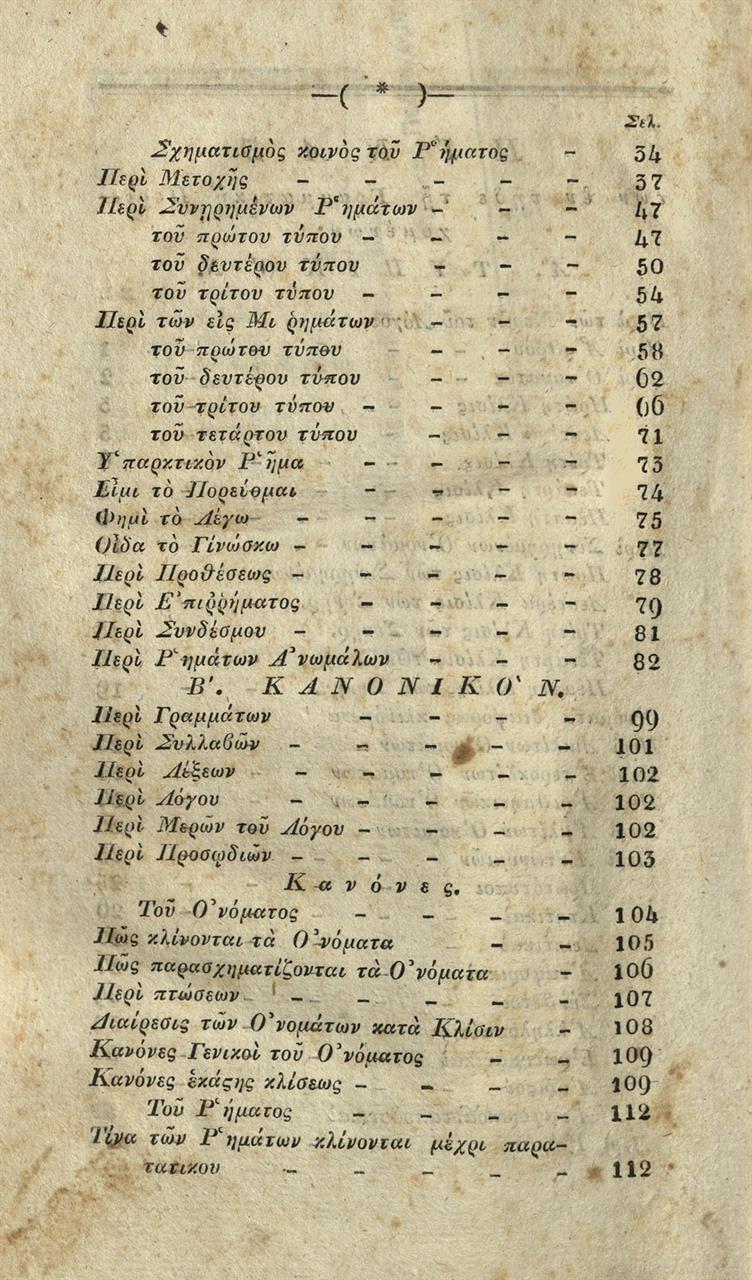 —( * )—
Σελ.
Σχηματισμὸς κοινὸς τοῦ Ρ῾ήματος - 34
Περὶ Μετοχῆς - - - - - 37
Περὶ Συνῃρημένων Ρ῾ημάτων - - - 47
τοῦ πρώτου τύπου - - - - 47
τοῦ δευτέρου τύπου - - - 50
τοῦ τρίτου τύπου - - - - 54
Περὶ τῶν εἰς Μι ῥημάτων - - - 57
τοῦ πρώτου τύπου - - - 58
τοῦ δευτέρου τύπου - - - 62
τοῦ τρίτου τύπου - - - - 66
τοῦ τετάρτου τύπου - - - 71
Υ῾παρκτικὸν Ρ῾ῆμα - - - - 73
Εἶμι τὸ Πορεύομαι - - - - 74
Φημὶ τὸ Λέγω - - - - - 75
Οἶδα τὸ Γίνώσκω - - - - - 77
Περὶ Προθέσεως - - - - - 78
Περὶ Ε᾿πιῤῥήματος - - - - 79
Περὶ Συνδέσμου - - - - - 81
Περὶ Ρ῾ημάτων Α᾿νωμάλων - - - 82
Β'. ΚΑΝΟΝΙΚΟ`Ν.
Περὶ Γραμμάτων - - - - 99
Περὶ Συλλαβῶν - - - - - 101
Περὶ Λέξεων - - - - - 102
Περὶ Λόγου - - - - - 102
Περὶ Μερῶν τοῦ Λόγου - - - - 102
Περὶ Προσῳδιῶν - - - - - 103
Κανόνες.
Τοῦ Ο᾿νόματος - - - - 104
Πῶς κλίνονται τὰ Ο᾿νόματα - - 105
Πῶς παρασχηματίζονται τὰ Ο᾿νόματα - 106
Περὶ πτώσεων - - - - - 107
Διαίρεσις τῶν Ο᾿νομάτων κατὰ Κλίσιν - 108
Κανόνες Γενικοὶ τοῦ Ο᾿νόματος - - 109
Κανόνες ἑκάϛης κλίσεως - - - - 109
Τοῦ Ρ῾ήματος - - - - 112
Τίνα τῶν Ρ῾ημάτων κλίνονται μέχρι παρα-
τατικου - - - - - 112